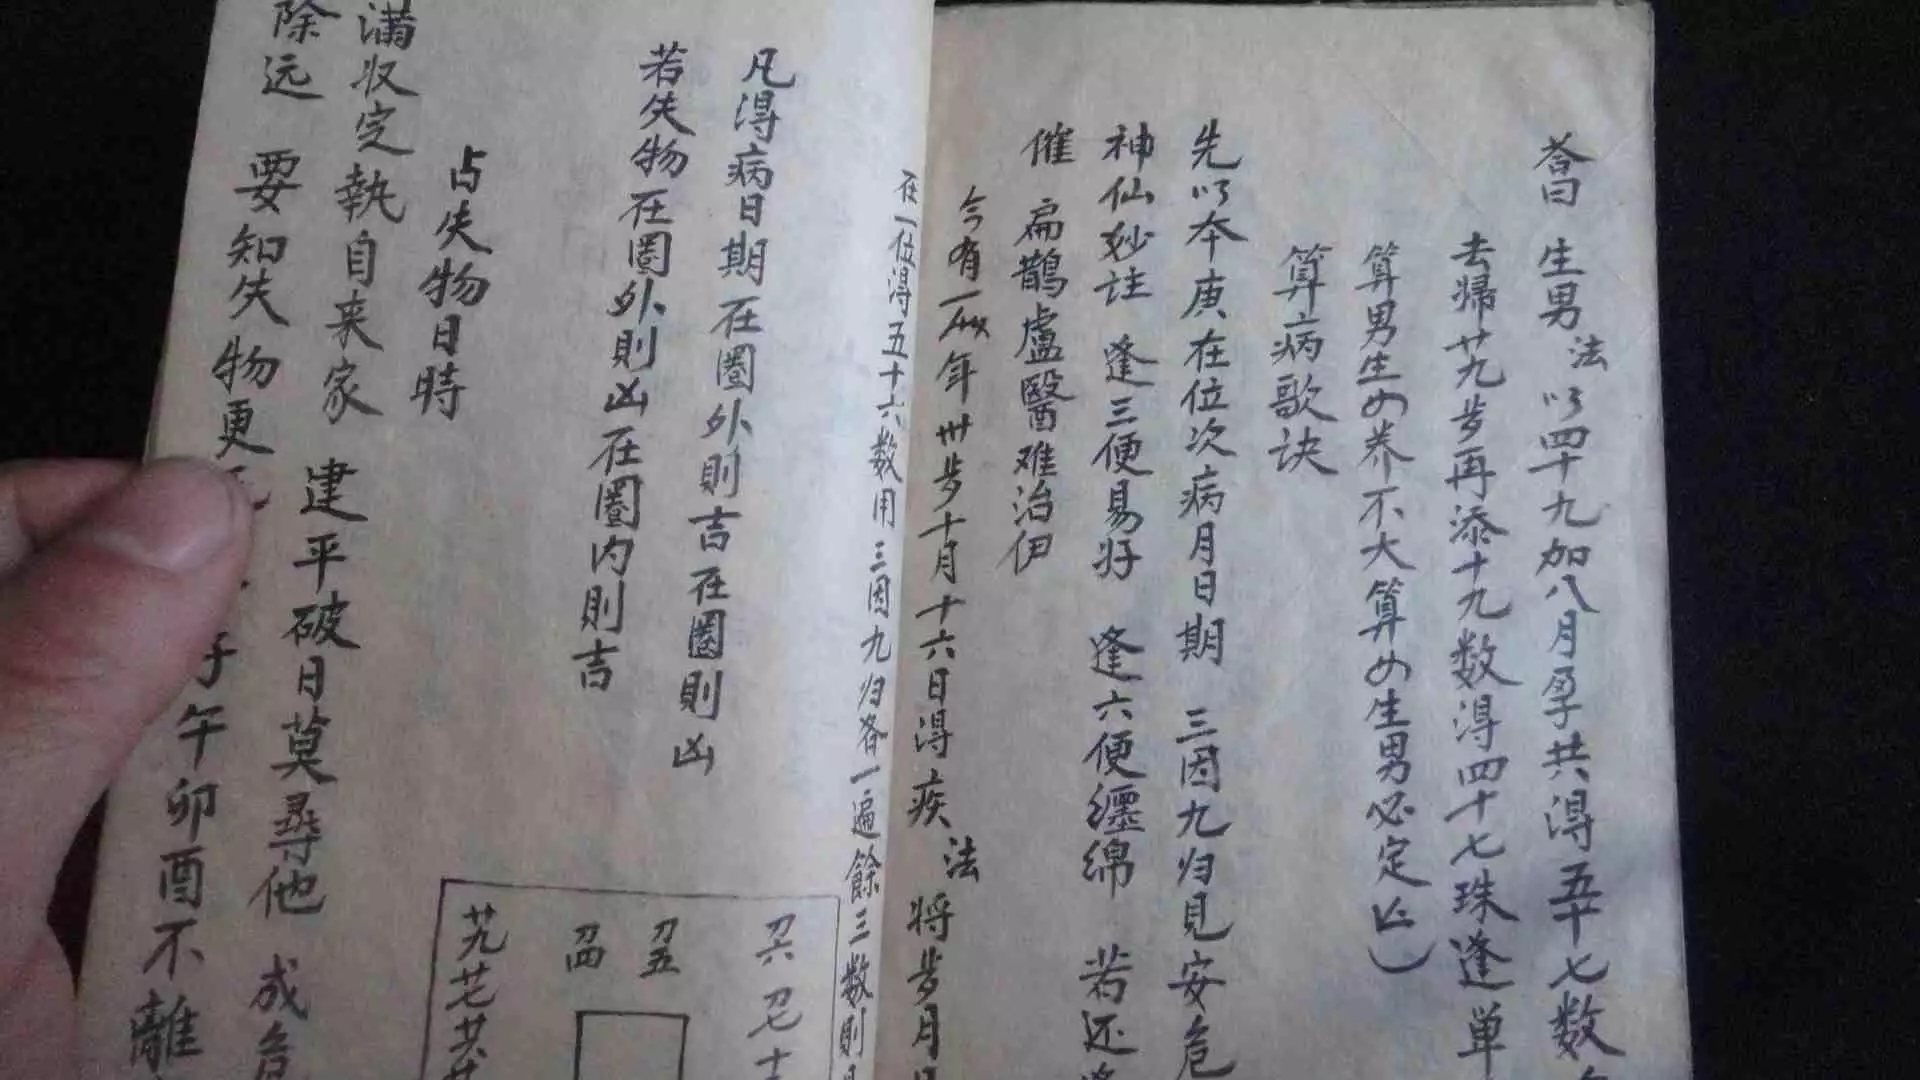 荅曰 生男 法 以四十九加八月孕共得五十七数
去歸廿九步再添十九数得四十七珠逢単
算男生女养不大算女生男必定亡
算病歌诀
先以本庚在位次病月日期 三因九归見安危
神仙妙註 逢三便易好 逢六便纏绵 若还
催 扁鵲盧醫难治伊
今有一 年卅步十月十六日得疾 法 将步月
在一位得五十六数用三因九归各一遍餘三数則
凡得病日期在圈外則吉在圈則凶
若失物在圈外則凶在圈内則吉
占失物日時
满収定執自来家 建平破日莫尋他 成危
除远 要知失物更 子午卯酉不離
刀六 刀七
刀五
刀四
廿九 廿七